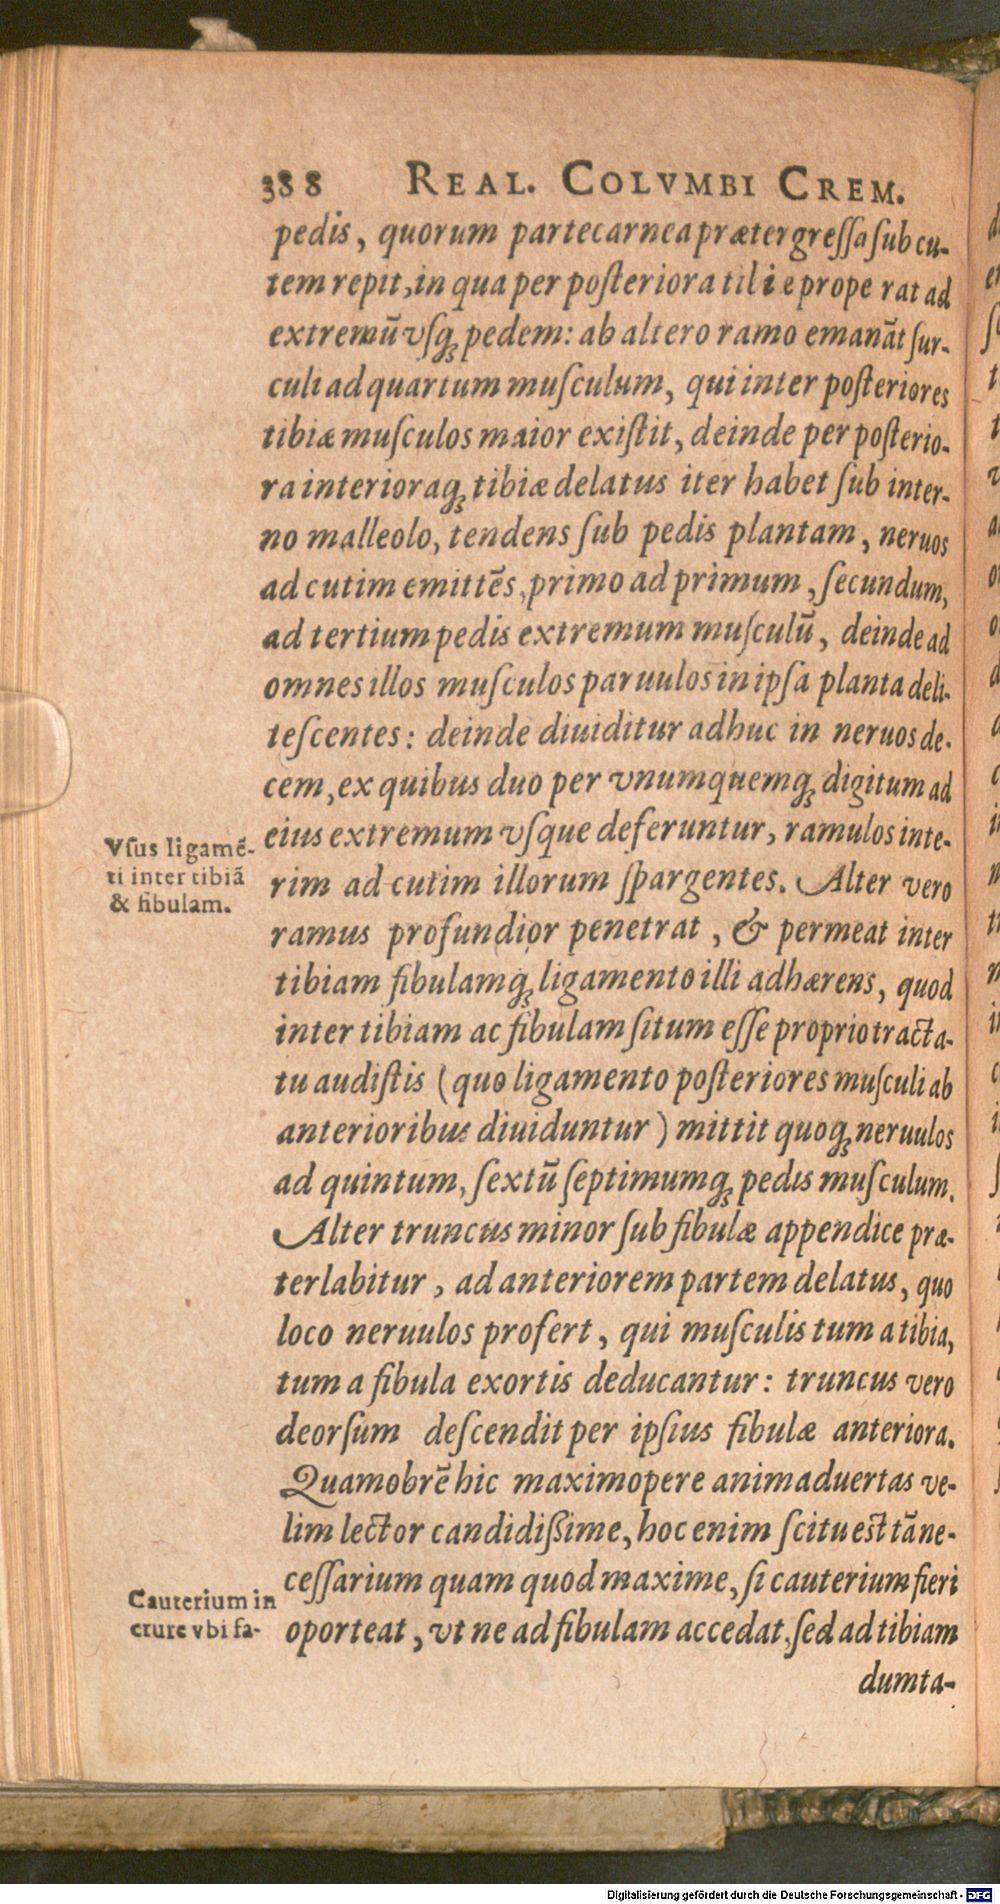 388 REAL. COLVMBI CREM.
pedis, quorum parte carnea prætergreſſa ſub cu-
tem repit, in qua per poſteriora tilie prope rat ad
extremū vſq; pedem: ab altero ramo emanāt ſur-
culi ad quartum muſculum, qui inter poſteriores
tibiæ muſculos maior exiſtit, deinde per poſterio-
ra interioraq; tibiæ delatus iter habet ſub inter-
no malleolo, tendens ſub pedis plantam, neruos
ad cutim emittēs, primo ad primum, ſecundum,
ad tertium pedis extremum muſculū, deinde ad
omnes illos muſculos paruulos in ipſa planta deli-
teſcentes: deinde diuiditur adhuc in neruos de-
cem, ex quibus duo per vnumquemq; digitum ad
eius extremum vſque deferuntur, ramulos inte-
rim ad cutim illorum ſpargentes. Alter vero
ramus profundior penetrat, & permeat inter
tibiam fibulamq; ligamento illi adhærens, quod
inter tibiam ac fibulam ſitum eſſe proprio tracta-
tu audiſtis (quo ligamento poſteriores muſculi ab
anterioribus diuiduntur) mittit quoq; neruulos
ad quintum, ſextū ſeptimumq; pedis muſculum.
Alter truncus minor ſub fibulæ appendice præ-
terlabitur, ad anteriorem partem delatus, quo
loco neruulos profert, qui muſculis tum a tibia,
tum a fibula exortis deducantur: truncus vero
deorſum deſcendit per ipſius fibulæ anteriora.
Quamobrē hic maximopere animaduertas ve-
lim lector candidißime, hoc enim ſcitu eſt tā ne-
ceſſarium quam quod maxime, ſi cauterium fieri
oporteat, vt ne ad fibulam accedat, ſed ad tibiam
dumta-
Vſus ligamē-
ti inter tibiā
& fibulam.
Cauterium in
crure vbi fa-
Digitalisierung gefördert durch die Deutsche Forschungsgemeinschaft - DFG